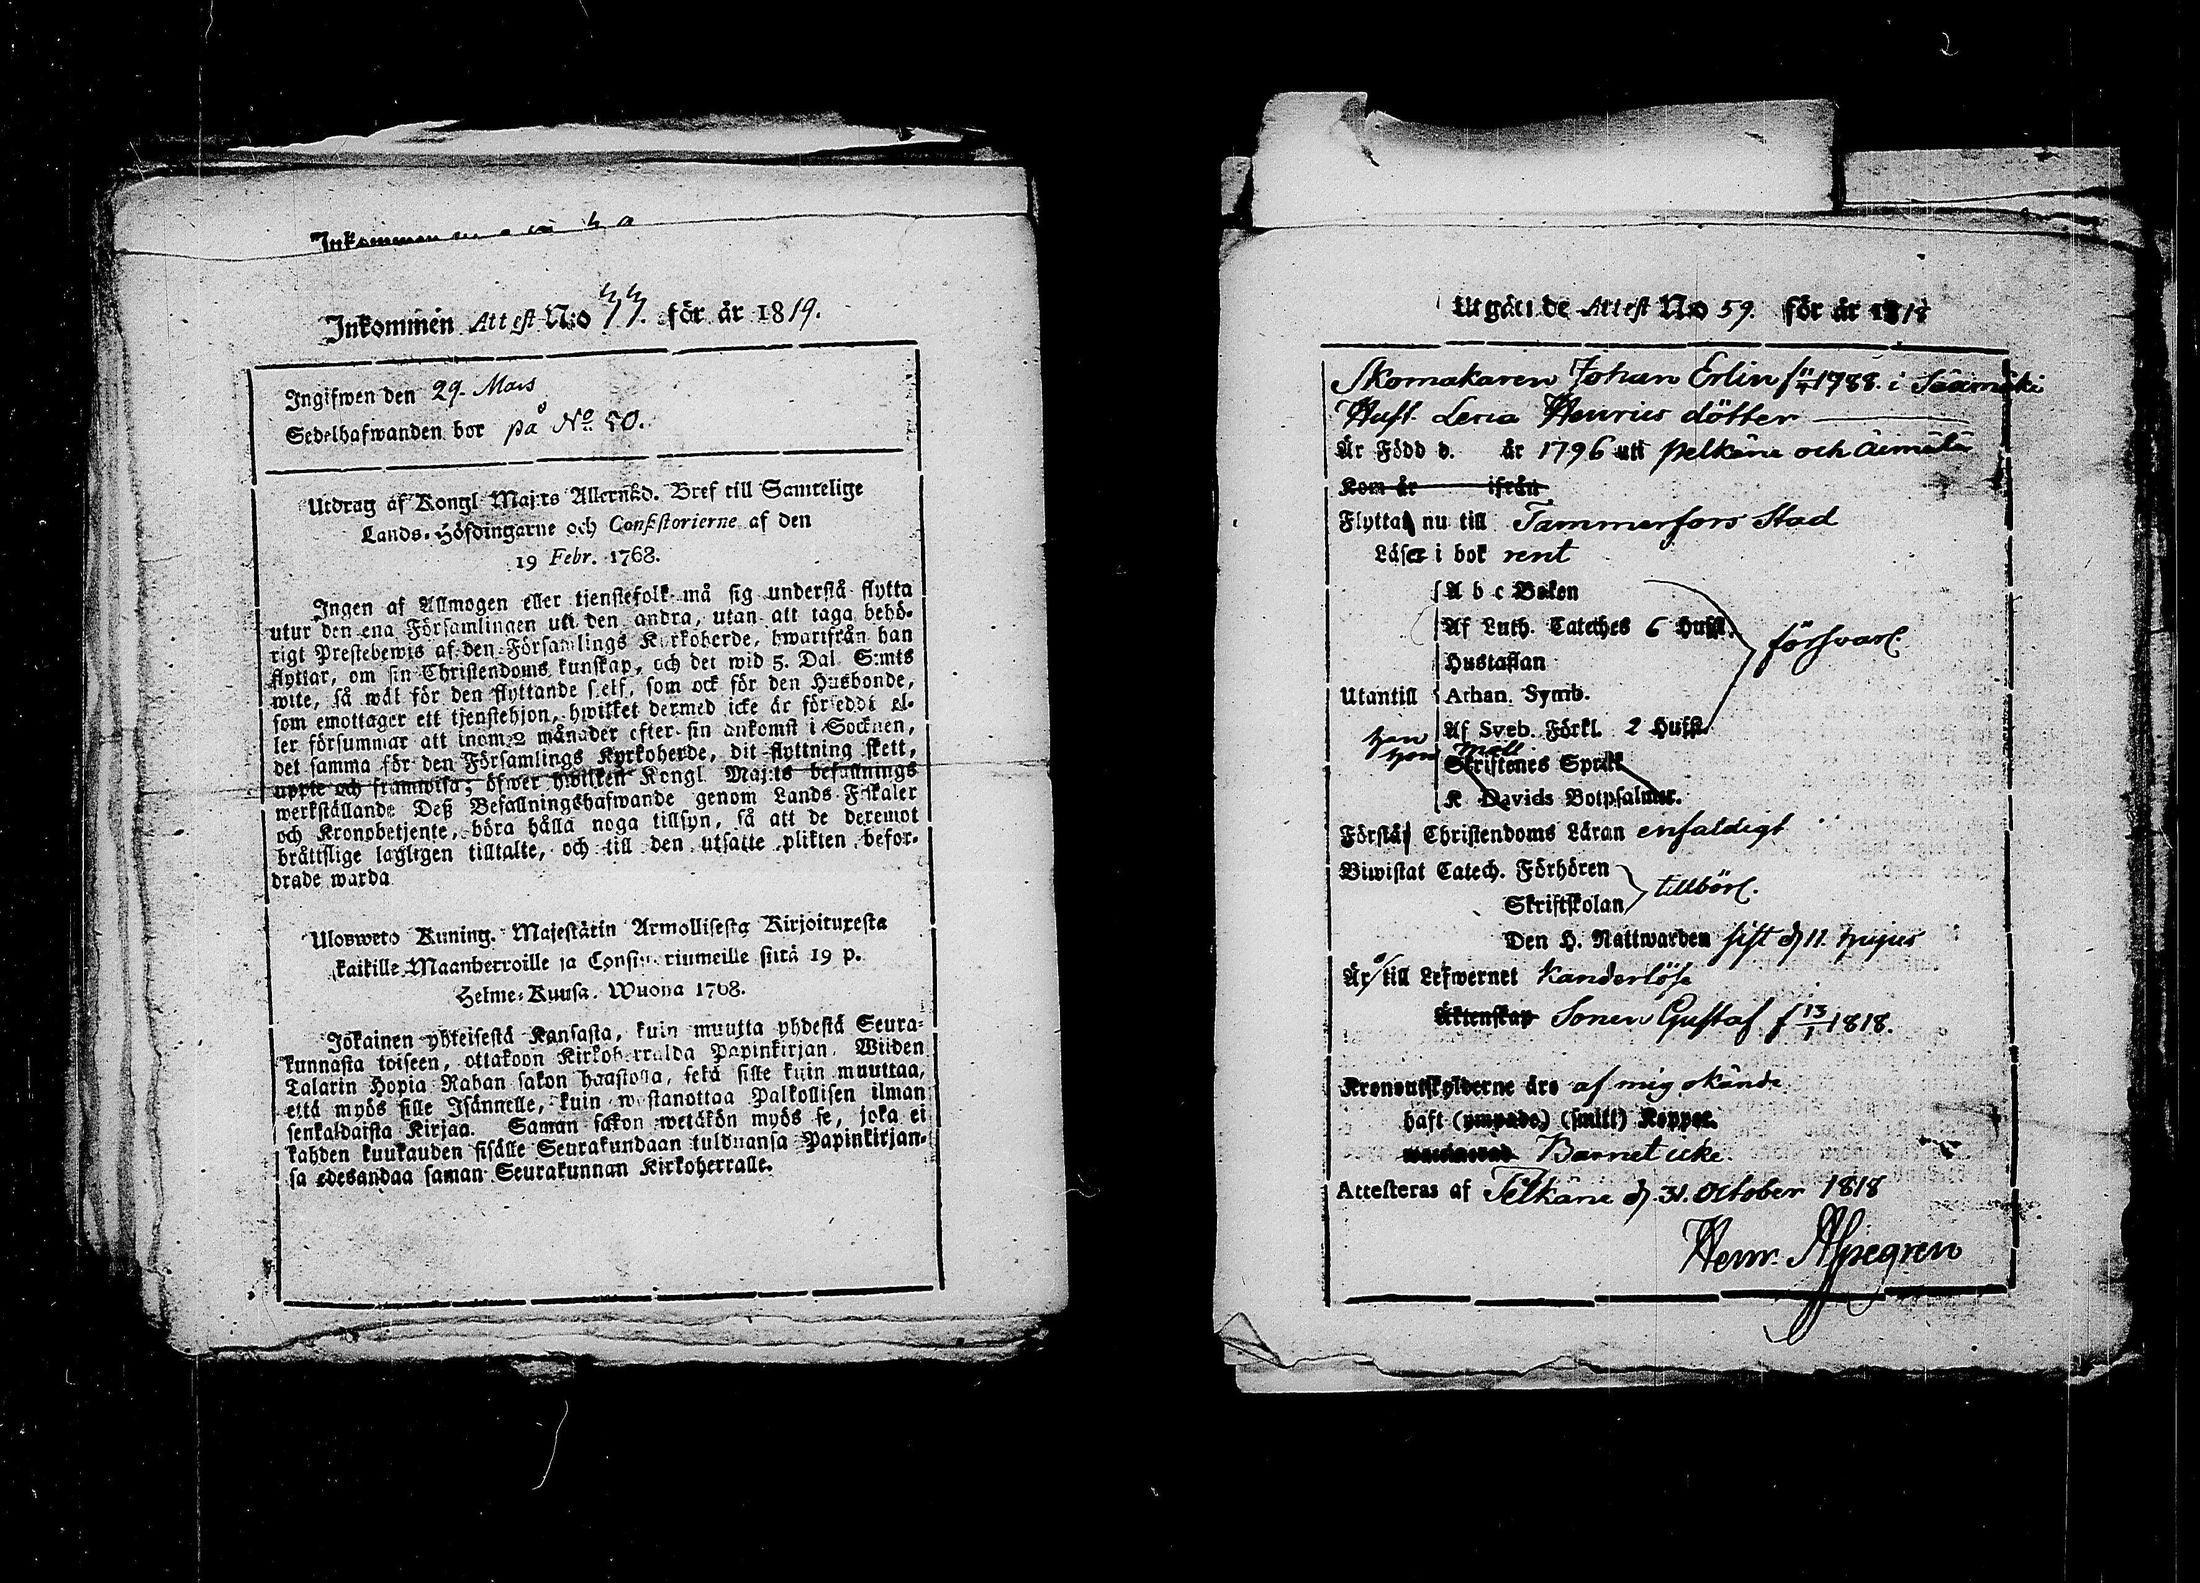 Inkommen
Inkommen Attest N:o 44. för år 1819.
Ingifwen den 29. Mars
Sedelhafwanden bor på No 50.
Utdrag af Kongl Maj:ts Allernåd. Bref till Samtelige
Lands-Höfdingarne och Consistorierne af den
19 Febr. 1768.
Ingen af Allmogen eller tjenstefolk må sig understå flytta
utur den ena Församlingen uti den andra, utan att taga behö-
rigt Prestebewis af den Församlings Kyrkoherde, hwarifrån han
flyttar, om sin Christendoms kunskap, och det wid 5. Dal. S:mts
wite, så wäl för den flyttande sielf, som ock för den Husbonde,
som emottager ett tjenstehjon, hwilket dermed icke är försedt el-
ler försummar att inom 2 månader efter sin ankomst i Socknen,
det samma för den Församlings Kyrkoherde, dit flyttning skett,
uppte och framwisa; öfwer hwilken Kongl Maj:ts befallnings
werkställande Deß Befallningshafwande genom Lands-Fiskaler
och Kronobetjente, böra hålla noga tillsyn, så att de deremot
bråttslige lagligen tilltalte, och till den utsatte plikten befor-
drade warda
Ulosweto Kuning. Majestätin Armollisesta Kirjoituxesta
kaikille Maanherroille ja Consistoriumeille siitä 19 p.
Helme-Kuusa. Wuona 1768.
Jokainen yhteisestä Kansasta, kuin muutta yhdestä Seura-
kunnasta toiseen, ottakoon Kirkoherralda Papinkirjan. Wiiden
Talarin Hopia Rahan sakon haastolla, sekä sille kuin muuttaa,
että myös sille Isännelle, kuin wastanottaa Palkollisen ilman
senkaldaista Kirjaa. Saman sakon wetäkön myös se, joka ei
kahden kuukauden sisälle Seurakundaan tulduansa Papinkirjan-
sa edesandaa saman Seurakunnan Kirkoherralle.
2
Utgåtide Attest N:o 59. för år 1818
Skomakaren Johan Erlin f 1788. i Säämäki
Hust. Lena Henrics dotter
Är Född d. år 1796 uti Pelkäne och
Kom år ifrån
Flytta nu till Tammerfors Stad
Läser i bok rent
A b c Boken
Af Luth. Cateches 6 Hufst. försvarl.
Hustaflan
Utantill Athan. Symb.
Af Sveb. Förkl. 2 Hufst.
Skriftenes Språk
K Davids Botpsalmer.
Förstår Christendoms Läran enfaldigt
Biwistat Catech. Förhören
Skriftskolan tillbörl.
Den H. Nattwarden sist d 11. hujus
Är till Lefwernet klanderlöse
Äktenskap Sonen Gustaf f 13/1 1818.
Kronoutskylderne äro af mig okände
haft (ympade) (smitt) Koppor.
Barnet icke.
Attesteras af Pelkäne d. 31. October 1818
Henr. Alfegren